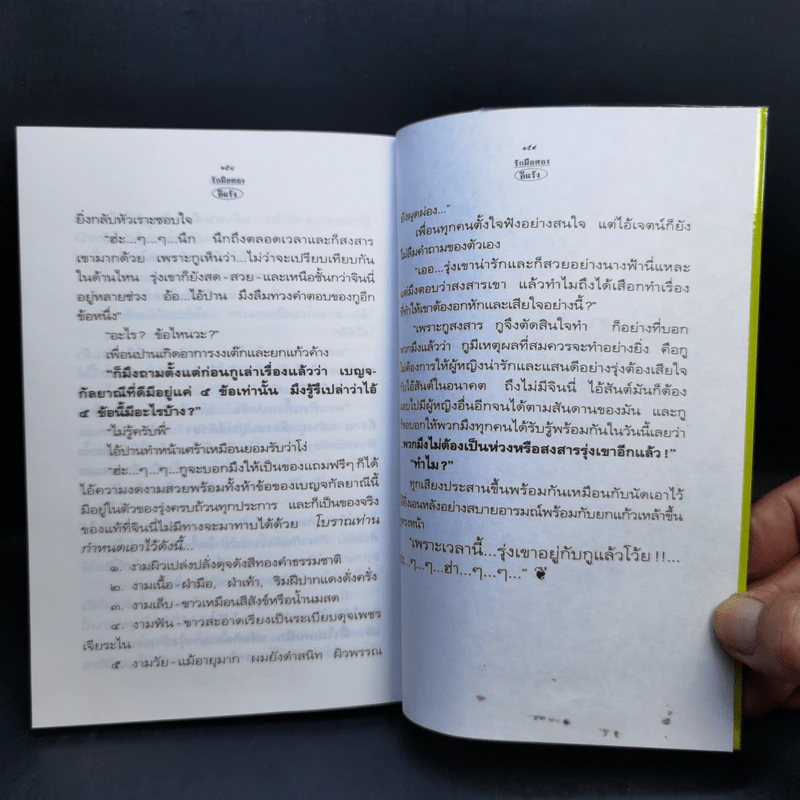 ๑๕๘
รักมือสอง
อีแร้ง
ยิ่งกลับหัวเราะชอบใจ
"ฮ่ะ...ๆ...ๆ...นึก นึกถึงตลอดเวลาและก็สงสาร
เขามากด้วย เพราะกูเห็นว่า...ไม่ว่าจะเปรียบเทียบกัน
ในด้านไหน รุ่งเขาก็ยังสด-สวย-และเหนือชั้นกว่าจินนี่
อยู่หลายช่วง อ้อ...ไอ้ปาน มึงลืมทวงคำตอบของกูอีก
ข้อหนึ่ง"
"อะไร? ข้อไหนวะ?"
เพื่อนปานเกิดอาการงงเต๊กและยกแก้วค้าง
"ก็มึงถามตั้งแต่ก่อนกูเล่าเรื่องแล้วว่า เบญจ-
กัลยาณีที่ดีมีอยู่แค่ ๕ ข้อเท่านั้น มึงรู้รึเปล่าว่าไอ้
๕ ข้อนี้มีอะไรบ้าง?"
"ไม่รู้ครับพี่"
ไอ้ปานทำหน้าเศร้าเหมือนยอมรับว่าโง่
"ฮ่ะ...ๆ...ๆ...กูจะบอกมึงให้เป็นของแถมฟรีๆ ก็ได้
ไอ้ความงดงามสวยพร้อมทั้งห้าข้อของเบญจกัลยาณีนี้
มีอยู่ในตัวของรุ่งครบถ้วนทุกประการ และก็เป็นของจริง
ของแท้ที่จินนี่ไม่มีทางจะมาทาบได้ด้วย โบราณท่าน
กำหนดเอาไว้ดังนี้...
๑. งามผิวเปล่งปลั่งดุจดังสีทองคำธรรมชาติ
๒. งามเนื้อ-ฝ่ามือ, ฝ่าเท้า, ริมฝีปากแดงดั่งครั่ง
๓. งามเล็บ-ขาวเหมือนสีสังข์หรือน้ำนมสด
๔. งามฟัน-ขาวสะอาดเรียงเป็นระเบียบดุจเพชร
เจียระไน
๕. งามวัย-แม้อายุมาก ผมยังดำสนิท ผิวพรรณ
๑๕๙
รักมือสอง
อีแร้ง
ยังผุดผ่อง..."
เพื่อนทุกคนตั้งใจฟังอย่างสนใจ แต่ไอ้เจตน์ก็ยัง
ไม่ลืมคำถามของตัวเอง
"เออ...รุ่งเขาน่ารักและก็สวยอย่างนางฟ้านี่แหละ
แต่มึงตอบว่าสงสารเขา แล้วทำไมถึงได้เสือกทำเรื่อง
ที่ทำให้เขาต้องอกหักและเสียใจอย่างนี้?"
"เพราะกูสงสาร กูจึงตัดสินใจทำ ก็อย่างที่บอก
พวกมึงแล้วว่า กูมีเหตุผลที่สมควรจะทำอย่างยิ่ง คือกู
ไม่ต้องการให้ผู้หญิงน่ารักและแสนดีอย่างรุ่งต้องเสียใจ
กับไอ้สันต์ในอนาคต ถึงไม่มีจินนี่ ไอ้สันต์มันก็ต้อง
แอบไปมีผู้หญิงอื่นอีกจนได้ตามสันดานของมัน และกู
ก็ขอบอกให้พวกมึงทุกคนได้รับรู้พร้อมกันในวันนี้เลยว่า
พวกมึงไม่ต้องเป็นห่วงหรือสงสารรุ่งเขาอีกแล้ว!"
"ทำไม?"
ทุกเสียงประสานขึ้นพร้อมกันเหมือนกับนัดเอาไว้
ยิ่งเอนหลังอย่างสบายอารมณ์พร้อมกับยกแก้วเหล้าขึ้น
ตรงหน้า
"เพราะเวลานี้...รุ่งเขาอยู่กับกูแล้วโว้ย!!...
ฮ่ะ...ๆ...ๆ...ฮ่า...ๆ...ๆ..."